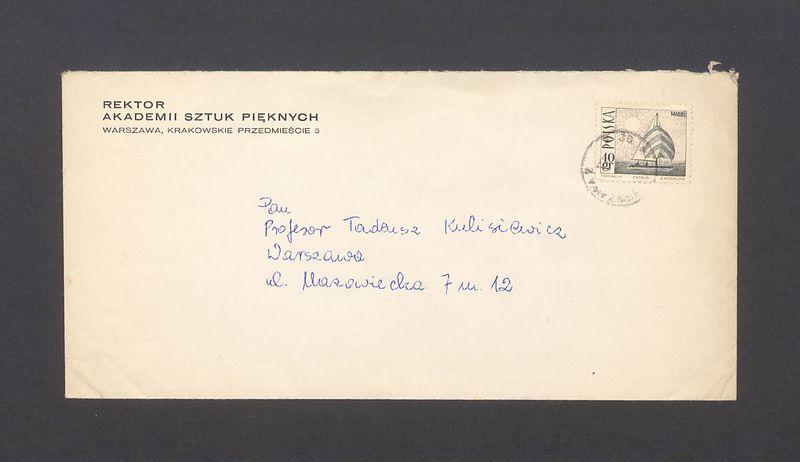 REKTOR
AKADEMII SZTUK PIĘKNYCH
WARSZAWA, KRAKOWSKIE PRZEDMIEŚCIE 5
POLSKA
40
gr
Pan
Profesor Tadeusz Kulisiewicz
Warszawa
ul. Mazowiecka 7 m. 12